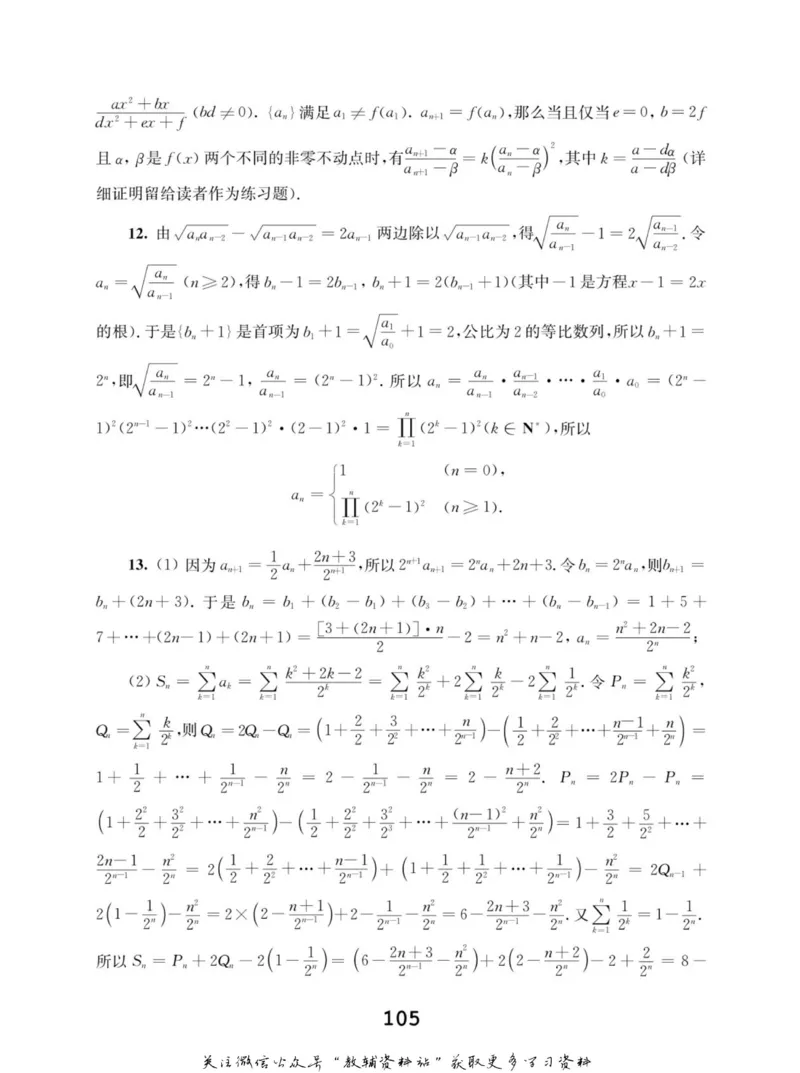 $\frac{ax^2+bx}{dx^2+ex+f}$ (bd≠0). {$a_n$}满足$a_1 \neq f(a_1)$. $a_{n+1}=f(a_n)$,那么当且仅当e=0, b=2f
且α, β是f(x)两个不同的非零不动点时,有$\frac{a_{n+1}-α}{a_{n+1}-β}=k\left(\frac{a_n-α}{a_n-β}\right)^2$,其中$k=\frac{a-dα}{a-dβ}$(详
细证明留给读者作为练习题).
12. 由$\sqrt{a_na_{n-2}}-\sqrt{a_{n-1}a_{n-2}}=2a_{n-1}$两边除以$\sqrt{a_{n-1}a_{n-2}}$,得$\sqrt{\frac{a_n}{a_{n-1}}}-1=2\sqrt{\frac{a_{n-1}}{a_{n-2}}}$.令
$a_n=\sqrt{\frac{a_n}{a_{n-1}}}$ (n≥2),得$b_n-1=2b_{n-1}$, $b_n+1=2(b_{n-1}+1)$(其中-1是方程x-1=2x
的根).于是{$b_n+1$}是首项为$b_1+1=\sqrt{\frac{a_1}{a_0}}+1=2$,公比为2的等比数列,所以$b_n+1=$
$2^n$,即$\sqrt{\frac{a_n}{a_{n-1}}}=2^n-1$, $\frac{a_n}{a_{n-1}}=(2^n-1)^2$. 所以$a_n=\frac{a_n}{a_{n-1}}\cdot\frac{a_{n-1}}{a_{n-2}}\cdot\cdots\cdot\frac{a_1}{a_0}\cdot a_0=(2^n-$
$1)^2(2^{n-1}-1)^2\cdots(2^2-1)^2\cdot(2-1)^2\cdot1=\prod_{k=1}^{n}(2^k-1)^2(k\in\mathbf{N}^*)$,所以
$a_n=\begin{cases}1 & (n=0),\\ \prod_{k=1}^{n}(2^k-1)^2 & (n≥1).\end{cases}$
13. (1) 因为$a_{n+1}=\frac{1}{2}a_n+\frac{2n+3}{2^{n+1}}$,所以$2^{n+1}a_{n+1}=2^na_n+2n+3$.令$b_n=2^na_n$,则$b_{n+1}=$
$b_n+(2n+3)$. 于是$b_n=b_1+(b_2-b_1)+(b_3-b_2)+\cdots+(b_n-b_{n-1})=1+5+$
$7+\cdots+(2n-1)+(2n+1)=\frac{[3+(2n+1)]\cdot n}{2}-2=n^2+n-2$, $a_n=\frac{n^2+2n-2}{2^n}$;
(2) $S_n=\sum_{k=1}^{n}a_k=\sum_{k=1}^{n}\frac{k^2+2k-2}{2^k}=\sum_{k=1}^{n}\frac{k^2}{2^k}+2\sum_{k=1}^{n}\frac{k}{2^k}-2\sum_{k=1}^{n}\frac{1}{2^k}$.令$P_n=\sum_{k=1}^{n}\frac{k^2}{2^k}$,
$Q_n=\sum_{k=1}^{n}\frac{k}{2^k}$,则$Q_n=2Q_n-Q_n=\left(1+\frac{2}{2}+\frac{3}{2^2}+\cdots+\frac{n}{2^{n-1}}\right)-\left(\frac{1}{2}+\frac{2}{2^2}+\cdots+\frac{n-1}{2^{n-1}}+\frac{n}{2^n}\right)=$
$1+\frac{1}{2}+\cdots+\frac{1}{2^{n-1}}-\frac{n}{2^n}=2-\frac{1}{2^{n-1}}-\frac{n}{2^n}=2-\frac{n+2}{2^n}$. $P_n=2P_n-P_n=$
$\left(1+\frac{2^2}{2}+\frac{3^2}{2^2}+\cdots+\frac{n^2}{2^{n-1}}\right)-\left(\frac{1}{2}+\frac{2^2}{2^2}+\frac{3^2}{2^3}+\cdots+\frac{(n-1)^2}{2^{n-1}}+\frac{n^2}{2^n}\right)=1+\frac{3}{2}+\frac{5}{2^2}+\cdots+$
$\frac{2n-1}{2^{n-1}}-\frac{n^2}{2^n}=2\left(\frac{1}{2}+\frac{2}{2^2}+\cdots+\frac{n-1}{2^{n-1}}\right)+\left(1+\frac{1}{2}+\frac{1}{2^2}+\cdots+\frac{1}{2^{n-1}}\right)-\frac{n^2}{2^n}=2Q_{n-1}+$
$2\left(1-\frac{1}{2^n}\right)-\frac{n^2}{2^n}=2×\left(2-\frac{n+1}{2^{n-1}}\right)+2-\frac{1}{2^{n-1}}-\frac{n^2}{2^n}=6-\frac{2n+3}{2^{n-1}}-\frac{n^2}{2^n}$. 又$\sum_{k=1}^{n}\frac{1}{2^k}=1-\frac{1}{2^n}$.
所以$S_n=P_n+2Q_n-2\left(1-\frac{1}{2^n}\right)=\left(6-\frac{2n+3}{2^{n-1}}-\frac{n^2}{2^n}\right)+2\left(2-\frac{n+2}{2^n}\right)-2+\frac{2}{2^n}=8-$
105
关注微信公众号“教辅资料站”获取更多学习资料